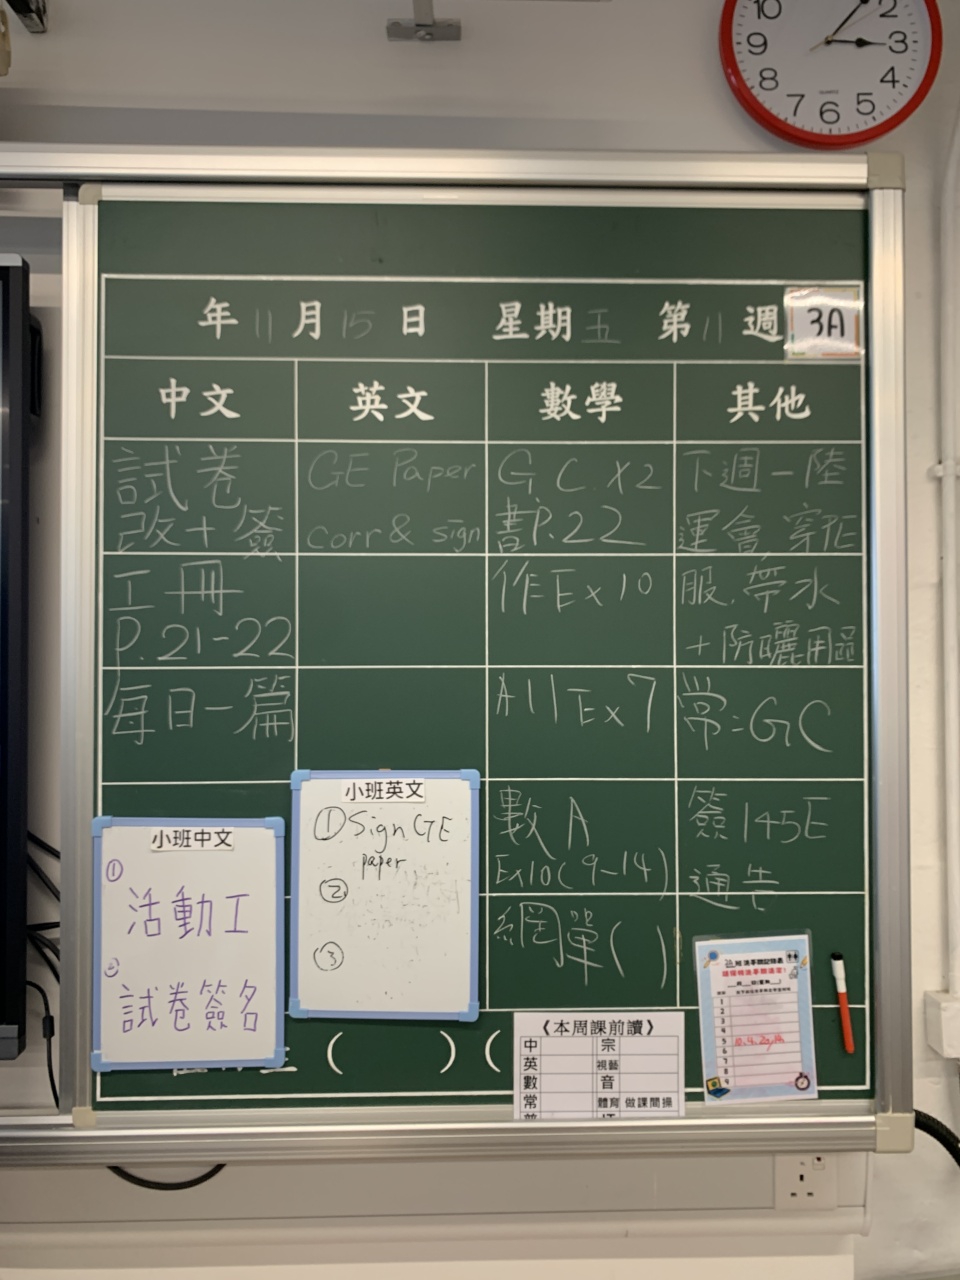 10 2
9 3
8 4
7 6 5
年 11 月 15 日 星期 五 第 11 週 3A
中文 英文 數學 其他
試卷
改+簽
工冊
P.21-22
每日一篇
GE Paper
corr & sign
G.C. x2
書P.22
作Ex10
All Ex7
數A
Ex10(9-14)
網單( )
下週一陸
運會,穿
服,帶水
+防曬用品
常=GC
簽145E
通告
小班中文
① 活動工
② 試卷簽名
小班英文
① Sign GE
paper
②
③
( ) (
《本周課前讀》
中 宗
英 視藝
數 音
常 體育 做課間操
1
2
3
4
5
6
7
8
9